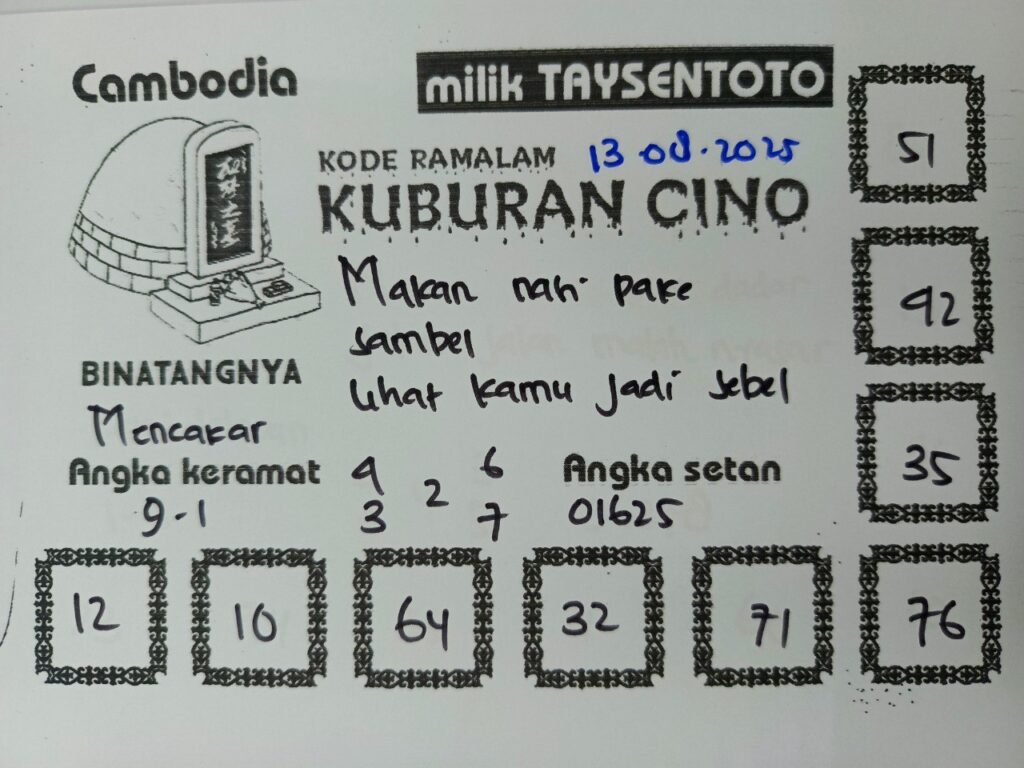 Cambodia
milik TAYSENTOTO
KODE RAMALAM 13 08.2025
KUBURAN CINO
Makan nasi pake
sambel
lihat kamu jadi sebel
BINATANGNYA
Mencakar
Angka keramat
9-1
4 6
2
3 7
Angka setan
01625
51
92
35
12 10 64 32 71 76